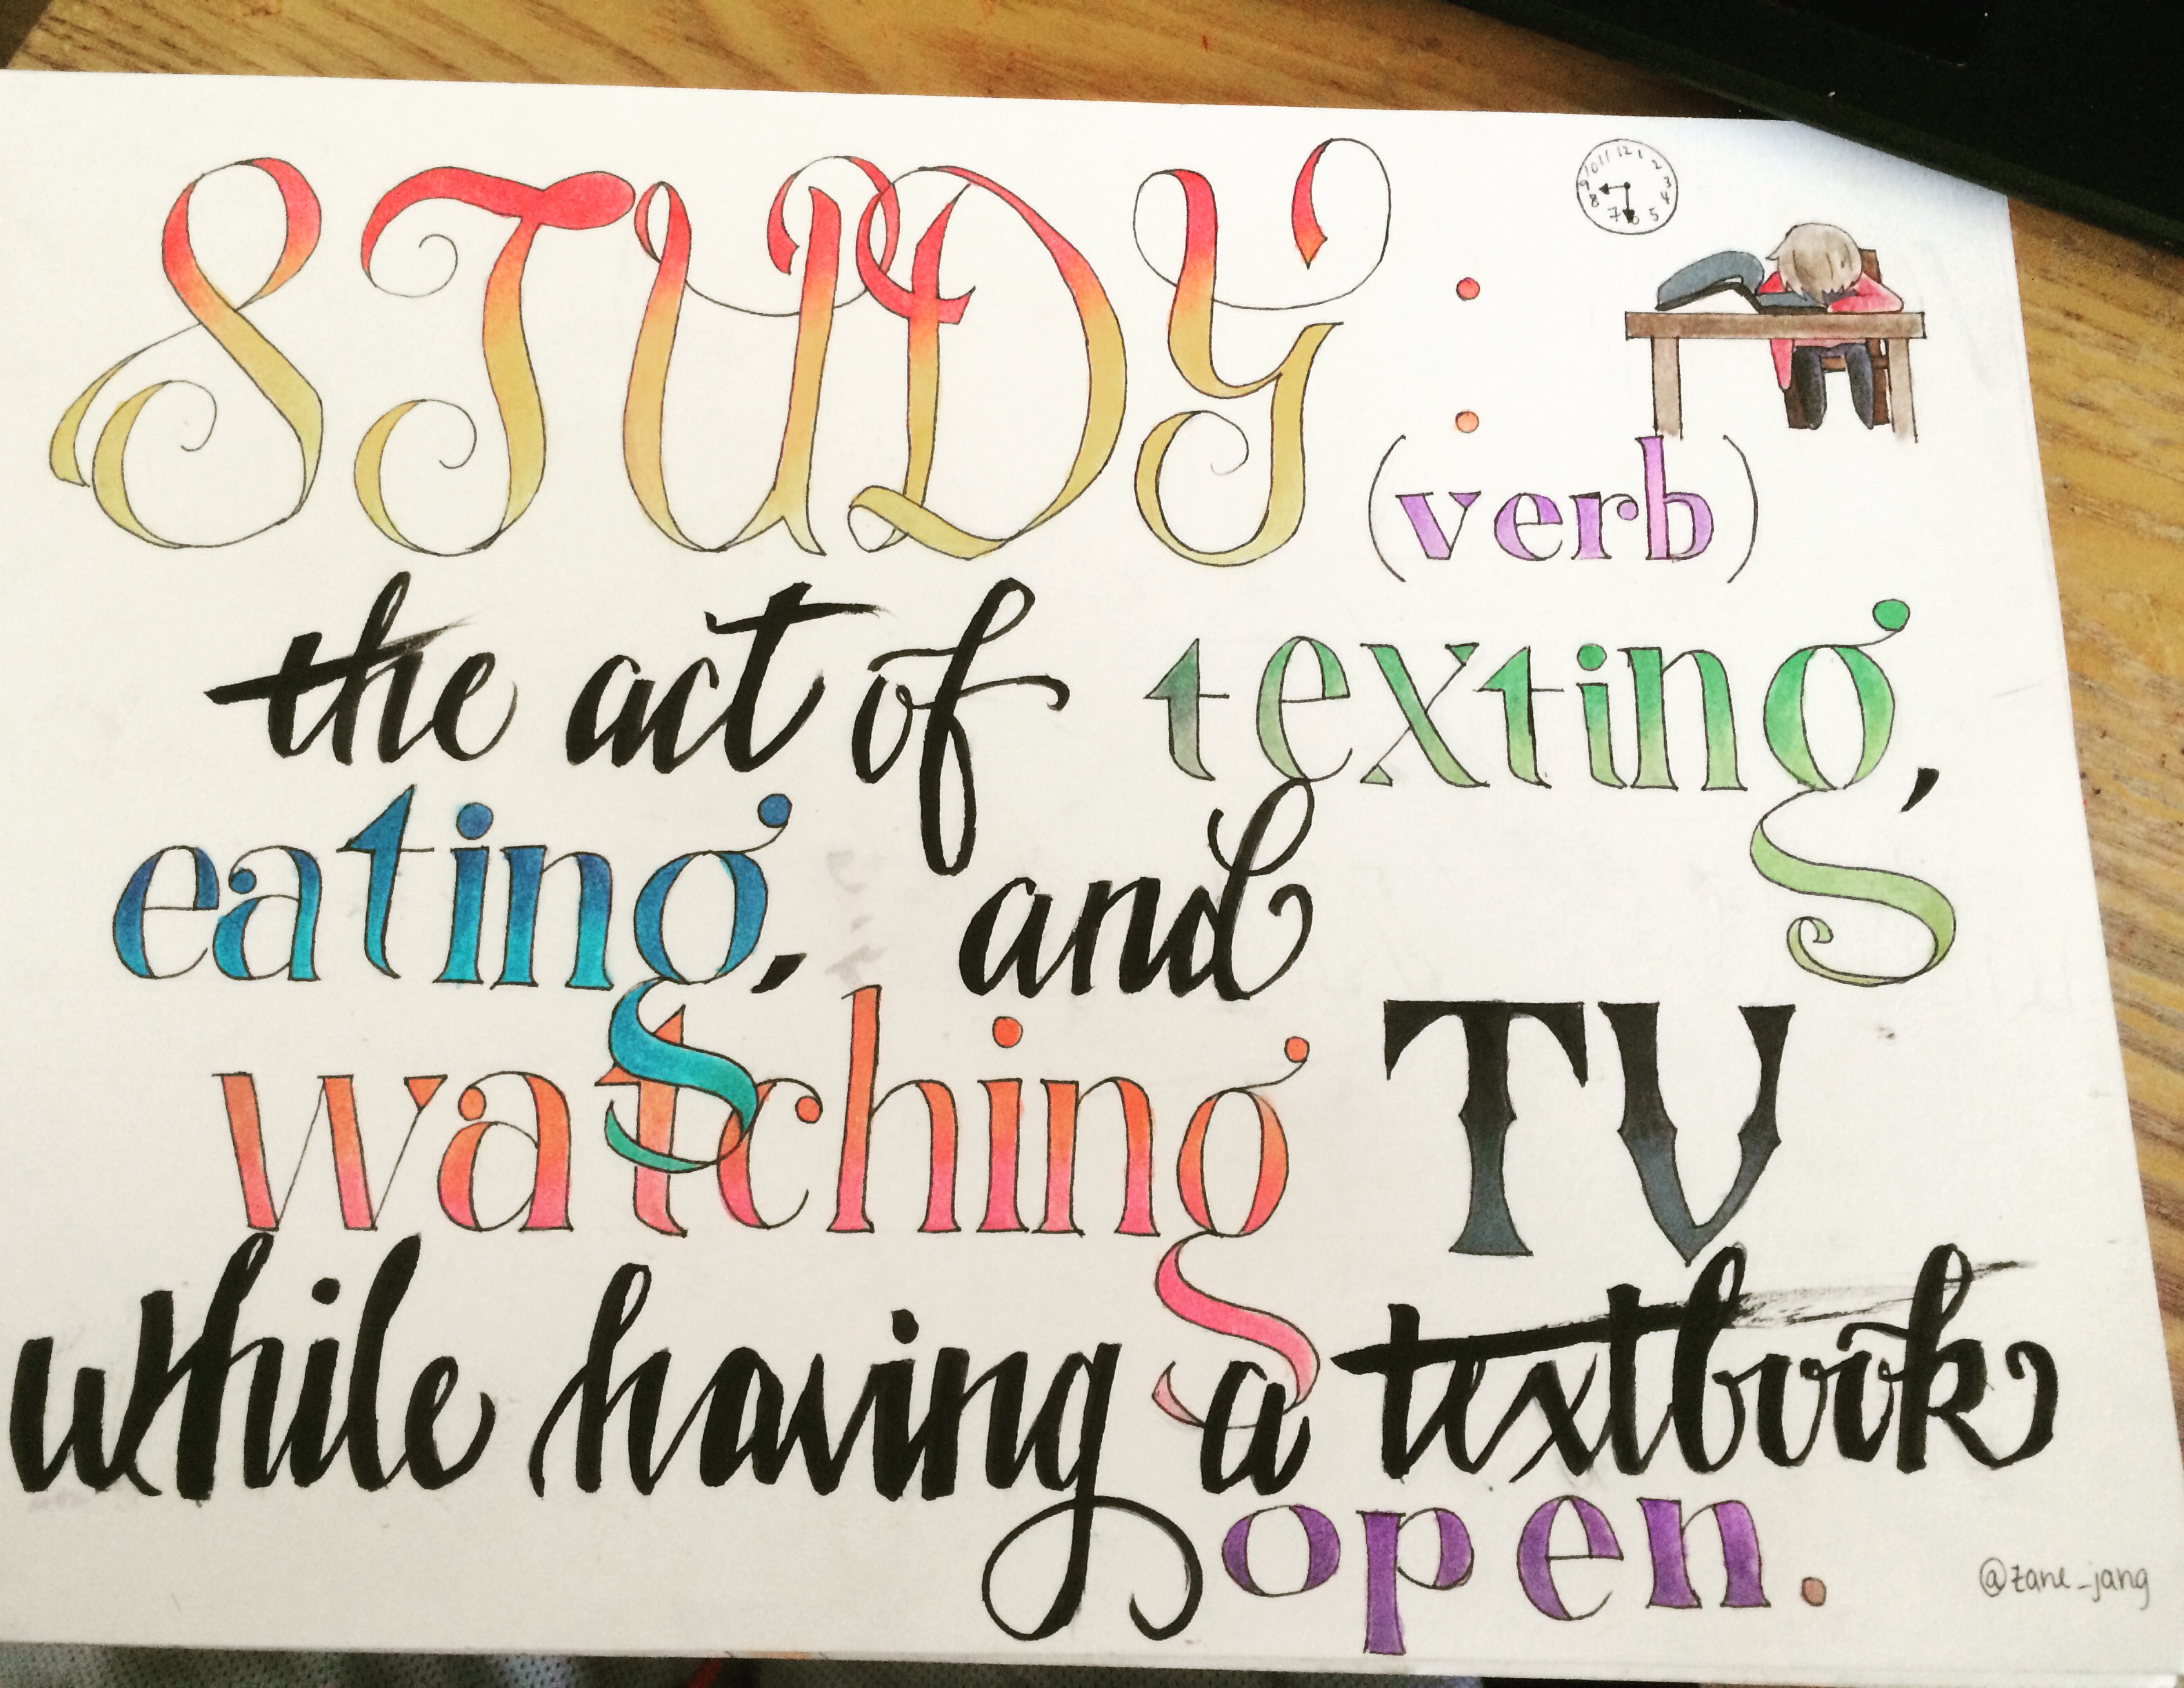 STUDY :
(verb)
the act of texting,
eating, and
watching TV
while having a textbook
open.
@zane_jang
10 11 12 1 2 3 4 5 6 7 8 9